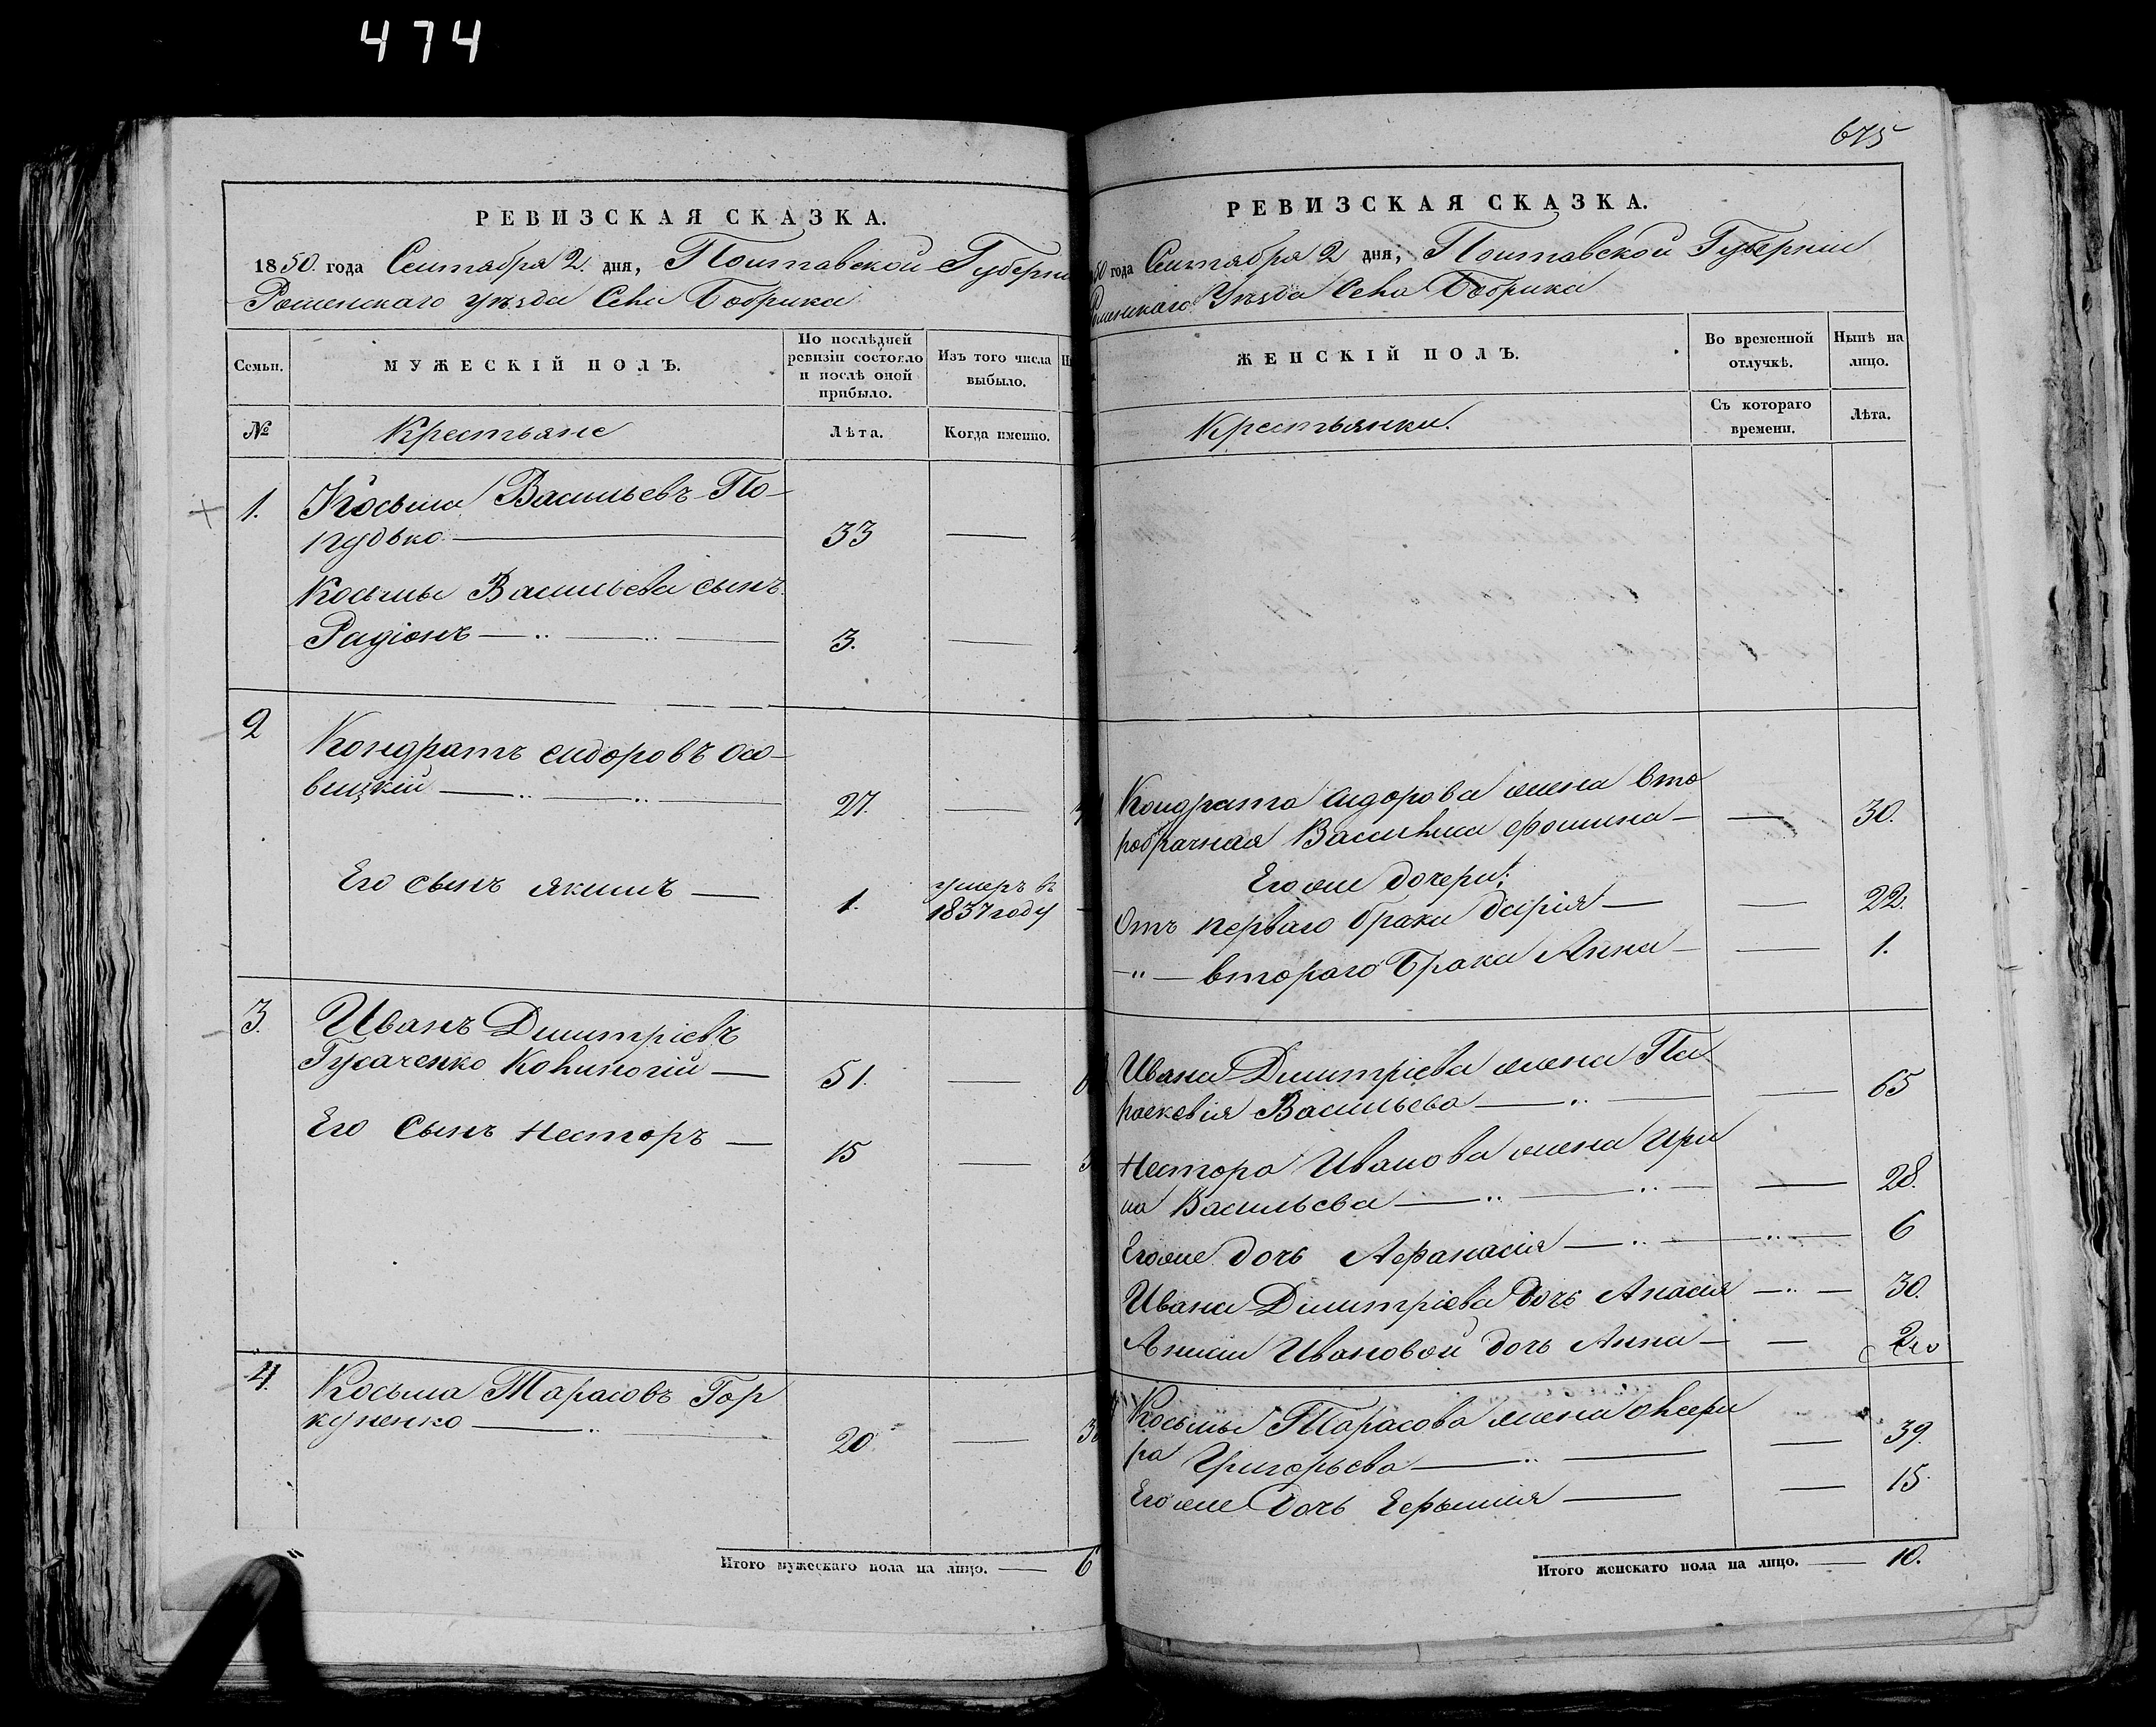 474
РЕВИЗСКАЯ СКАЗКА.
1850. года Сентября 2. дня, Полтавской Губерни
Роменскаго уѣзда Села Бобрика
Семьи.
МУЖЕСКІЙ ПОЛЪ.
По послѣдней ревизіи состояло и послѣ оной прибыло.
Изъ того числа выбыло.
№
Крестьяне
Лѣта.
Когда именно.
1. Косьма Васильевъ По-
гудько 33
Косьмы Васильева сынъ
Радіонъ 3.
2 Кондратъ Сидоровъ
27.
Его сынъ Якимъ 1. умеръ въ
1837 году
3. Иванъ Дмитріевъ
Гусаченко 51.
Его Сынъ Несторъ 15
4. Косьма Тарасовъ Гор
куненко 20.
Итого мужескаго пола на лицо. 6
675
РЕВИЗСКАЯ СКАЗКА.
50 года Сентября 2 дня, Полтавской Губерніи
Роменскаго Уѣзда Села Бобрика
ЖЕНСКІЙ ПОЛЪ.
Во временной отлучкѣ.
Нынѣ на лицо.
Крестьянки.
Съ котораго времени.
Лѣта.
Кондрата Сидорова жена вто
робрачная Фомина 30.
Его же дочери:
Отъ перваго брака 22.
втораго Брака Анна 1.
Ивана Дмитріева жена Па
расковія Васильева 65
Нестора Иванова жена Ири
на Васильева 28.
Его же дочь Афанасія 6
Ивана Дмитріева дочь 30.
Ивановой дочь Анна
Косьмы Тарасова жена
Григорьева 39.
Его же дочь Ефимия 15.
Итого женскаго пола на лицо. 10.